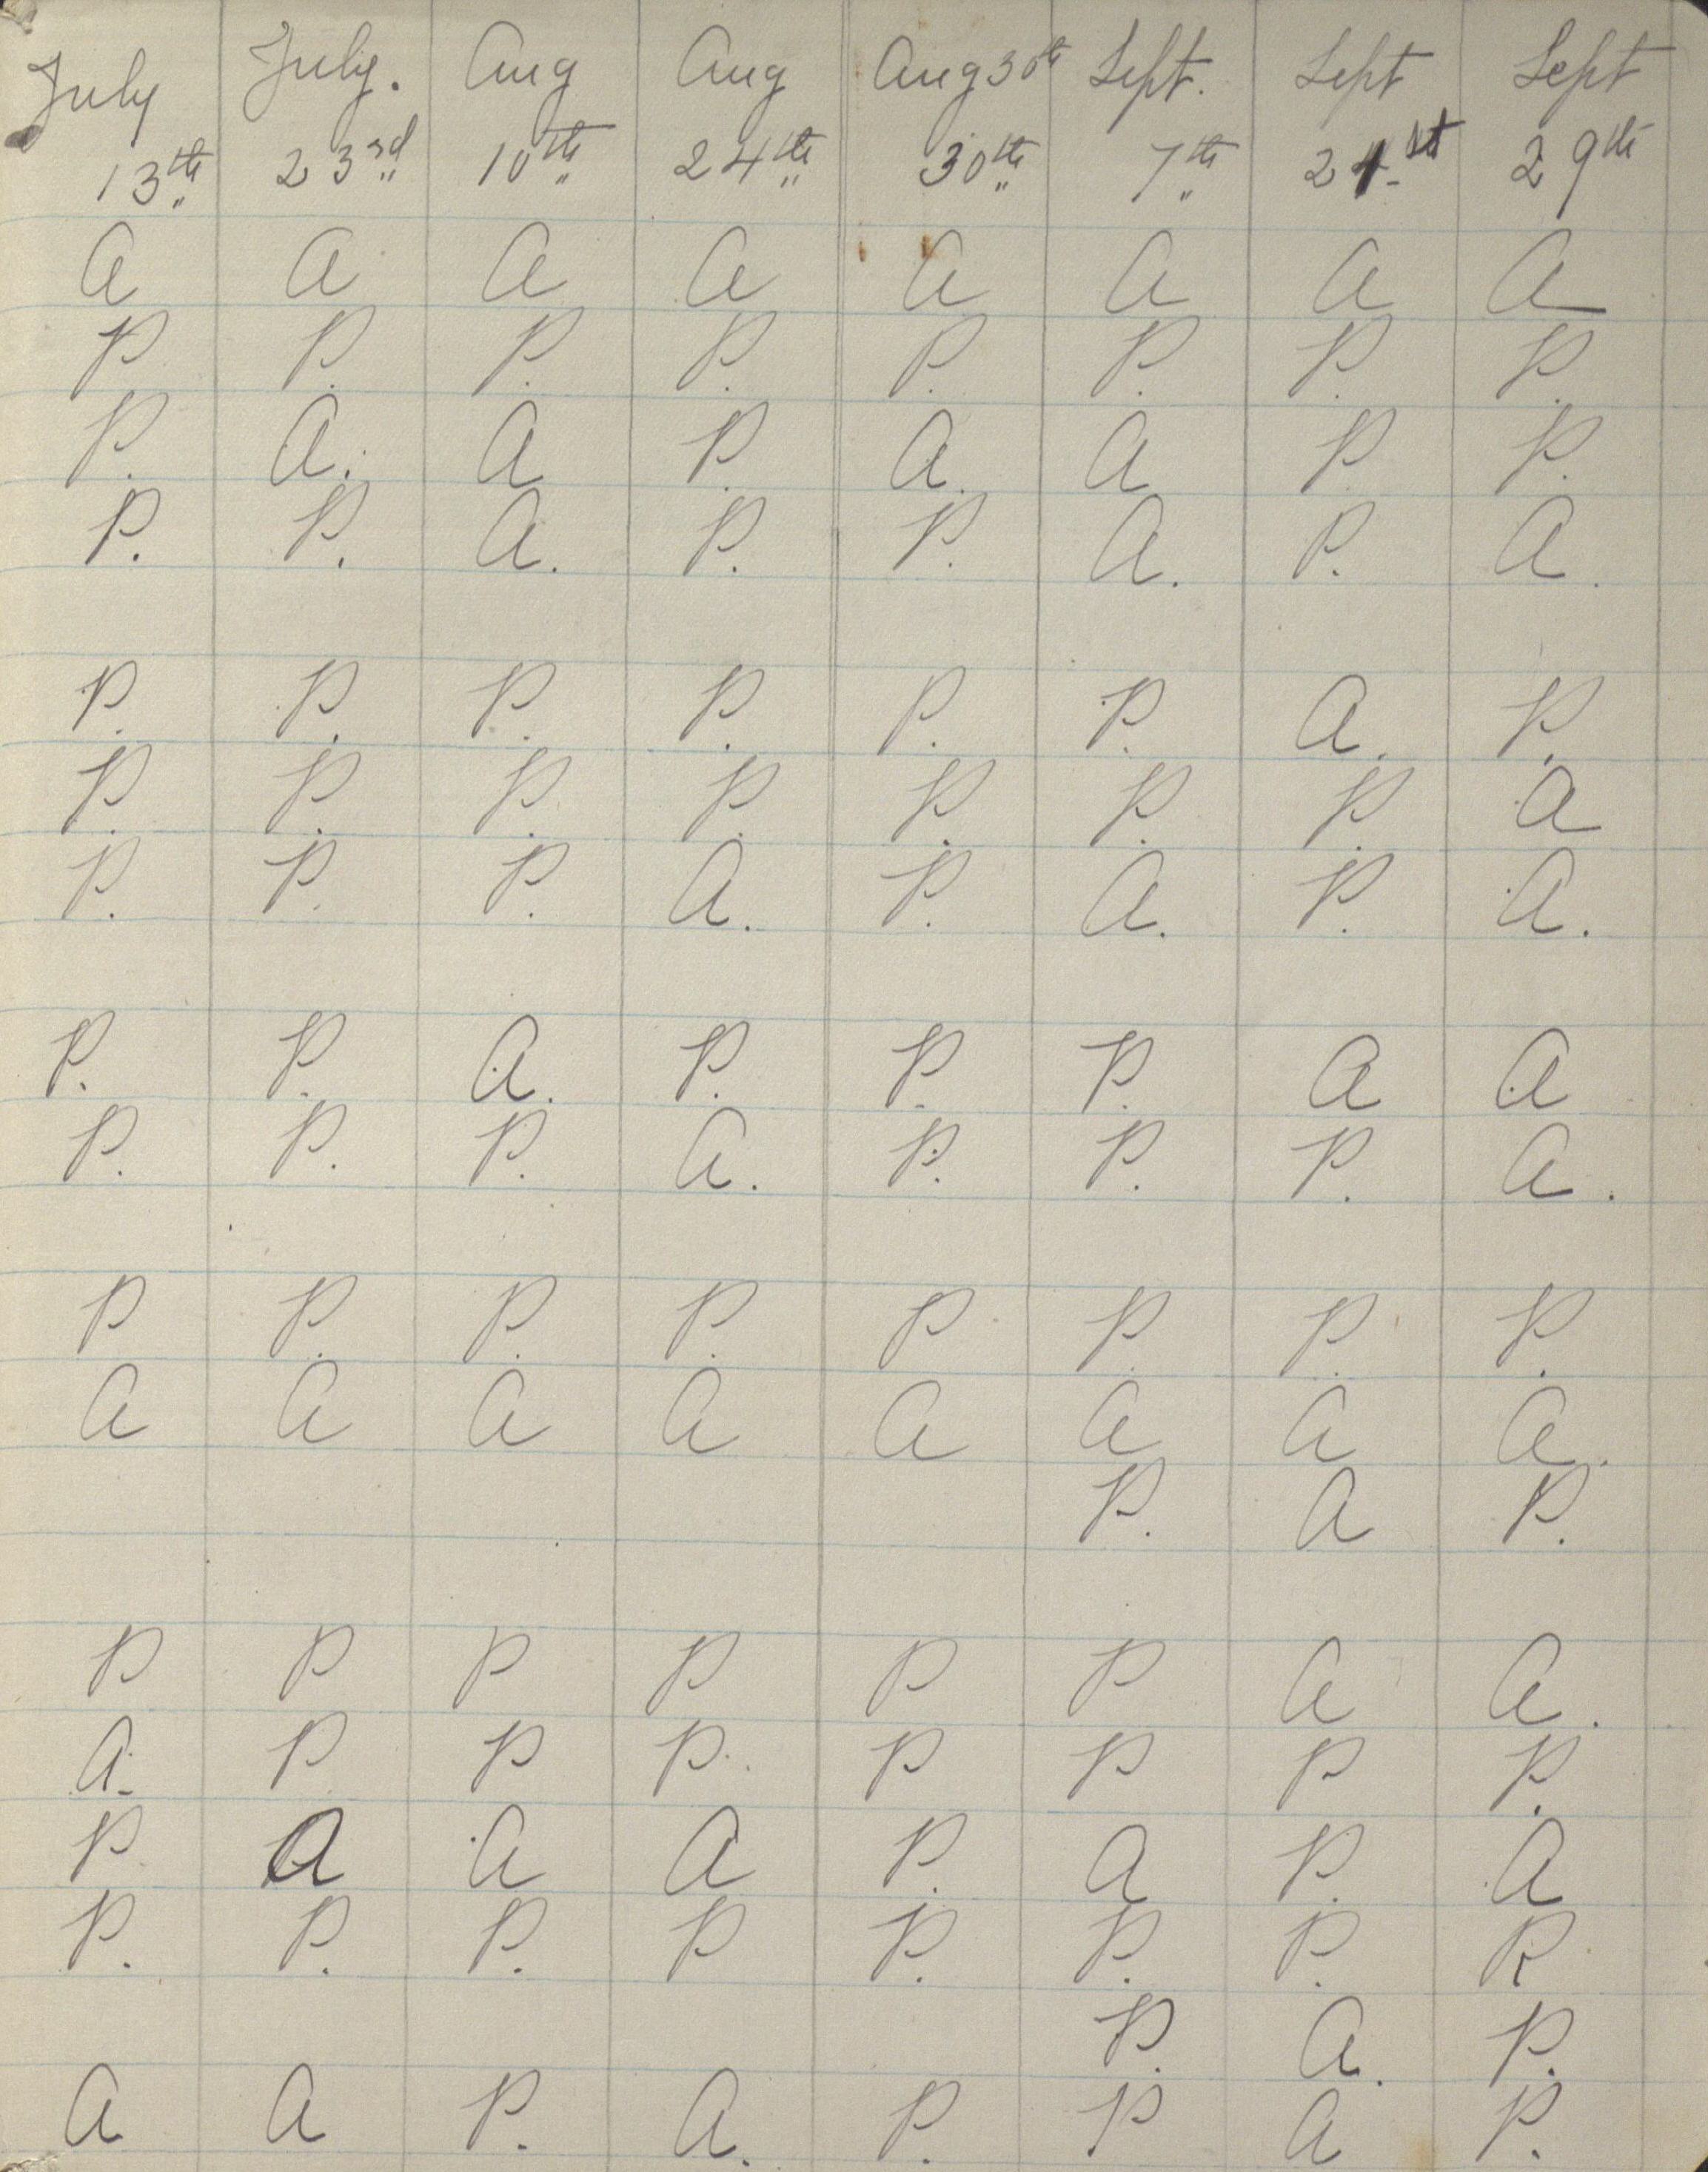 July July. Aug Aug Aug 30th Sept. Sept Sept
13th 23rd 10th 24th 30th 7th 21st 29th
A A A A A A A A
P P. P. P. P. P. P. P.
P. A. A P. A. A P. P.
P. P. A. P. P. A. P. A.
P. P. P. P. P. P. A. P.
P. P. P. P. P. P. P. A
P. P. P. A. P. A. P. A.
P. P. A. P. P. P. A A
P. P. P. A. P. P. P. A.
P P. P. P. P P. P. P.
A A A A A A A A.
P. A P.
P P P P P P A A.
A. P P P. P P P P.
P A A A P. A P. A
P. P. P. P P. P. P. P.
P. A. P.
A A P. A. P. P A P.